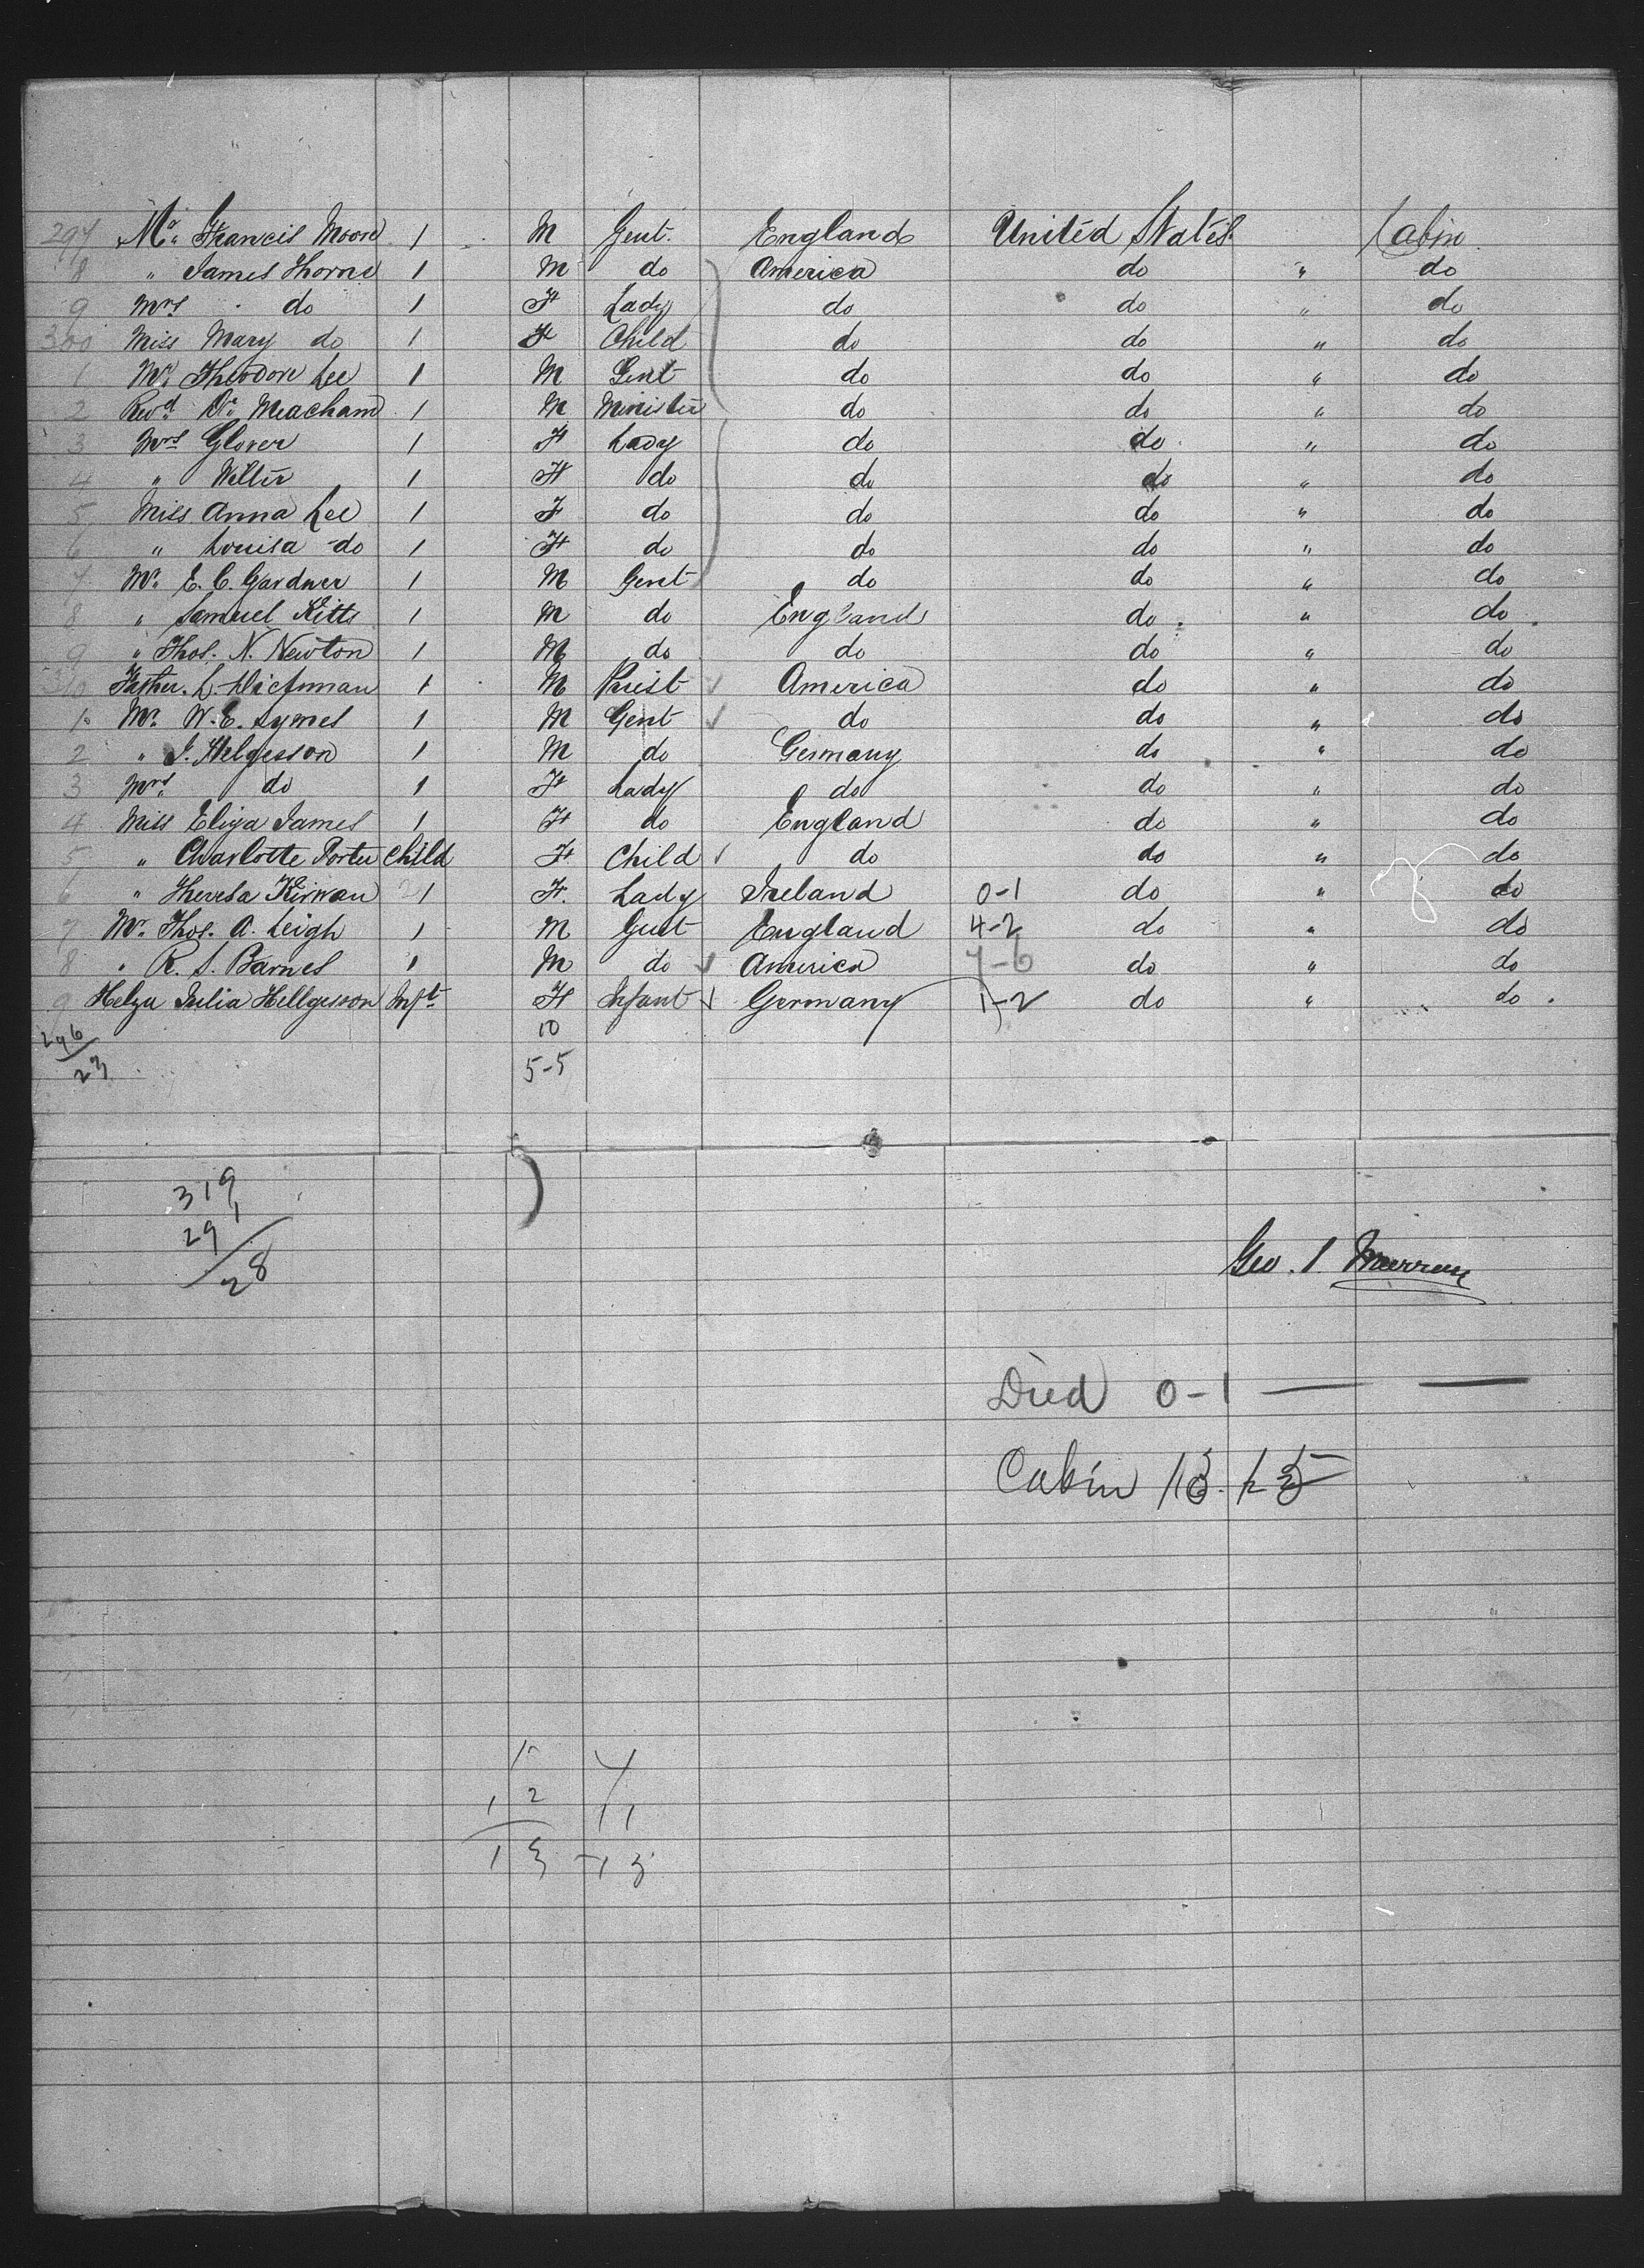 297 Mr. Francis Moore 1 M Gent. England United States Cabin
8 " James Thorne 1 M do America do " do
9 Mrs do 1 F Lady do do " do
300 Miss Mary do 1 F Child do do " do
1 Mr. Theodore Lee 1 M Gent do do " do
2 Revd. Dr. Meacham 1 M Minister do do " do
3 Mrs Glover 1 F Lady do do " do
4 " 1 F do do do " do
5 Miss Anna Lee 1 F do do do " do
6 " Louisa do 1 F do do do " do
7 Mr. E. C. Gardner 1 M Gent do do " do
8 " Samuel Kitts 1 M do England do " do
9 " Thos. N. Newton 1 M do do do " do
310 Father. L. 1 M Priest America do " do
1 Mr. W. E. Symes 1 M Gent do do " do
2 " J. Helgesson 1 M do Germany do " do
3 Mrs. do 1 F Lady do do " do
4 Miss Eliza James 1 F do England do " do
5 " Charlotte Porter Child F Child do do " do
6 " Theresa Kirwan 21 F. Lady Ireland 0-1 do " do
7 Mr. Thos. A. Leigh 1 M Gent England 4-2 do " do
8 " R. S. Barnes 1 M do America 7-6 do " do
9 Helga Julia Hellgesson Inft F Infant Germany 1-2 do " do
296 10
23 5-5
319
291
28
Geo. 
Died 0-1
Cabin
1 4
12 11
13 -13